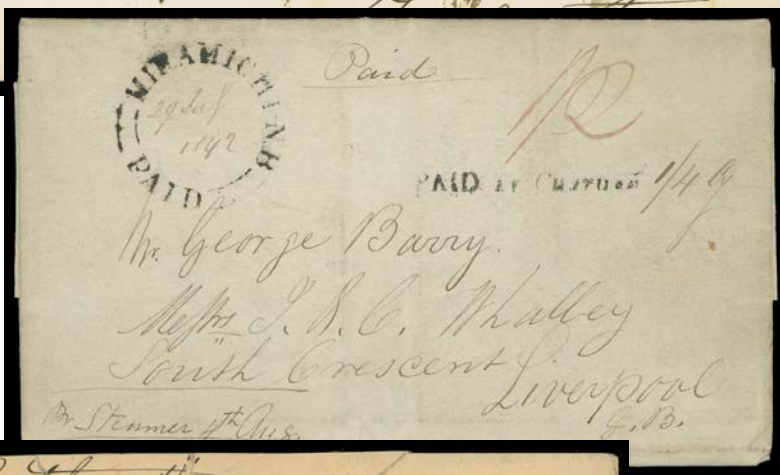 MIRAMICHI N.B
29 July
1842
PAID
Paid
1/2
PAID AT 1/4 9
Mr. George Barry.
Messrs J. & C. Whalley
South Crescent
Liverpool
G. B.
Pr Steamer 4th Aug.